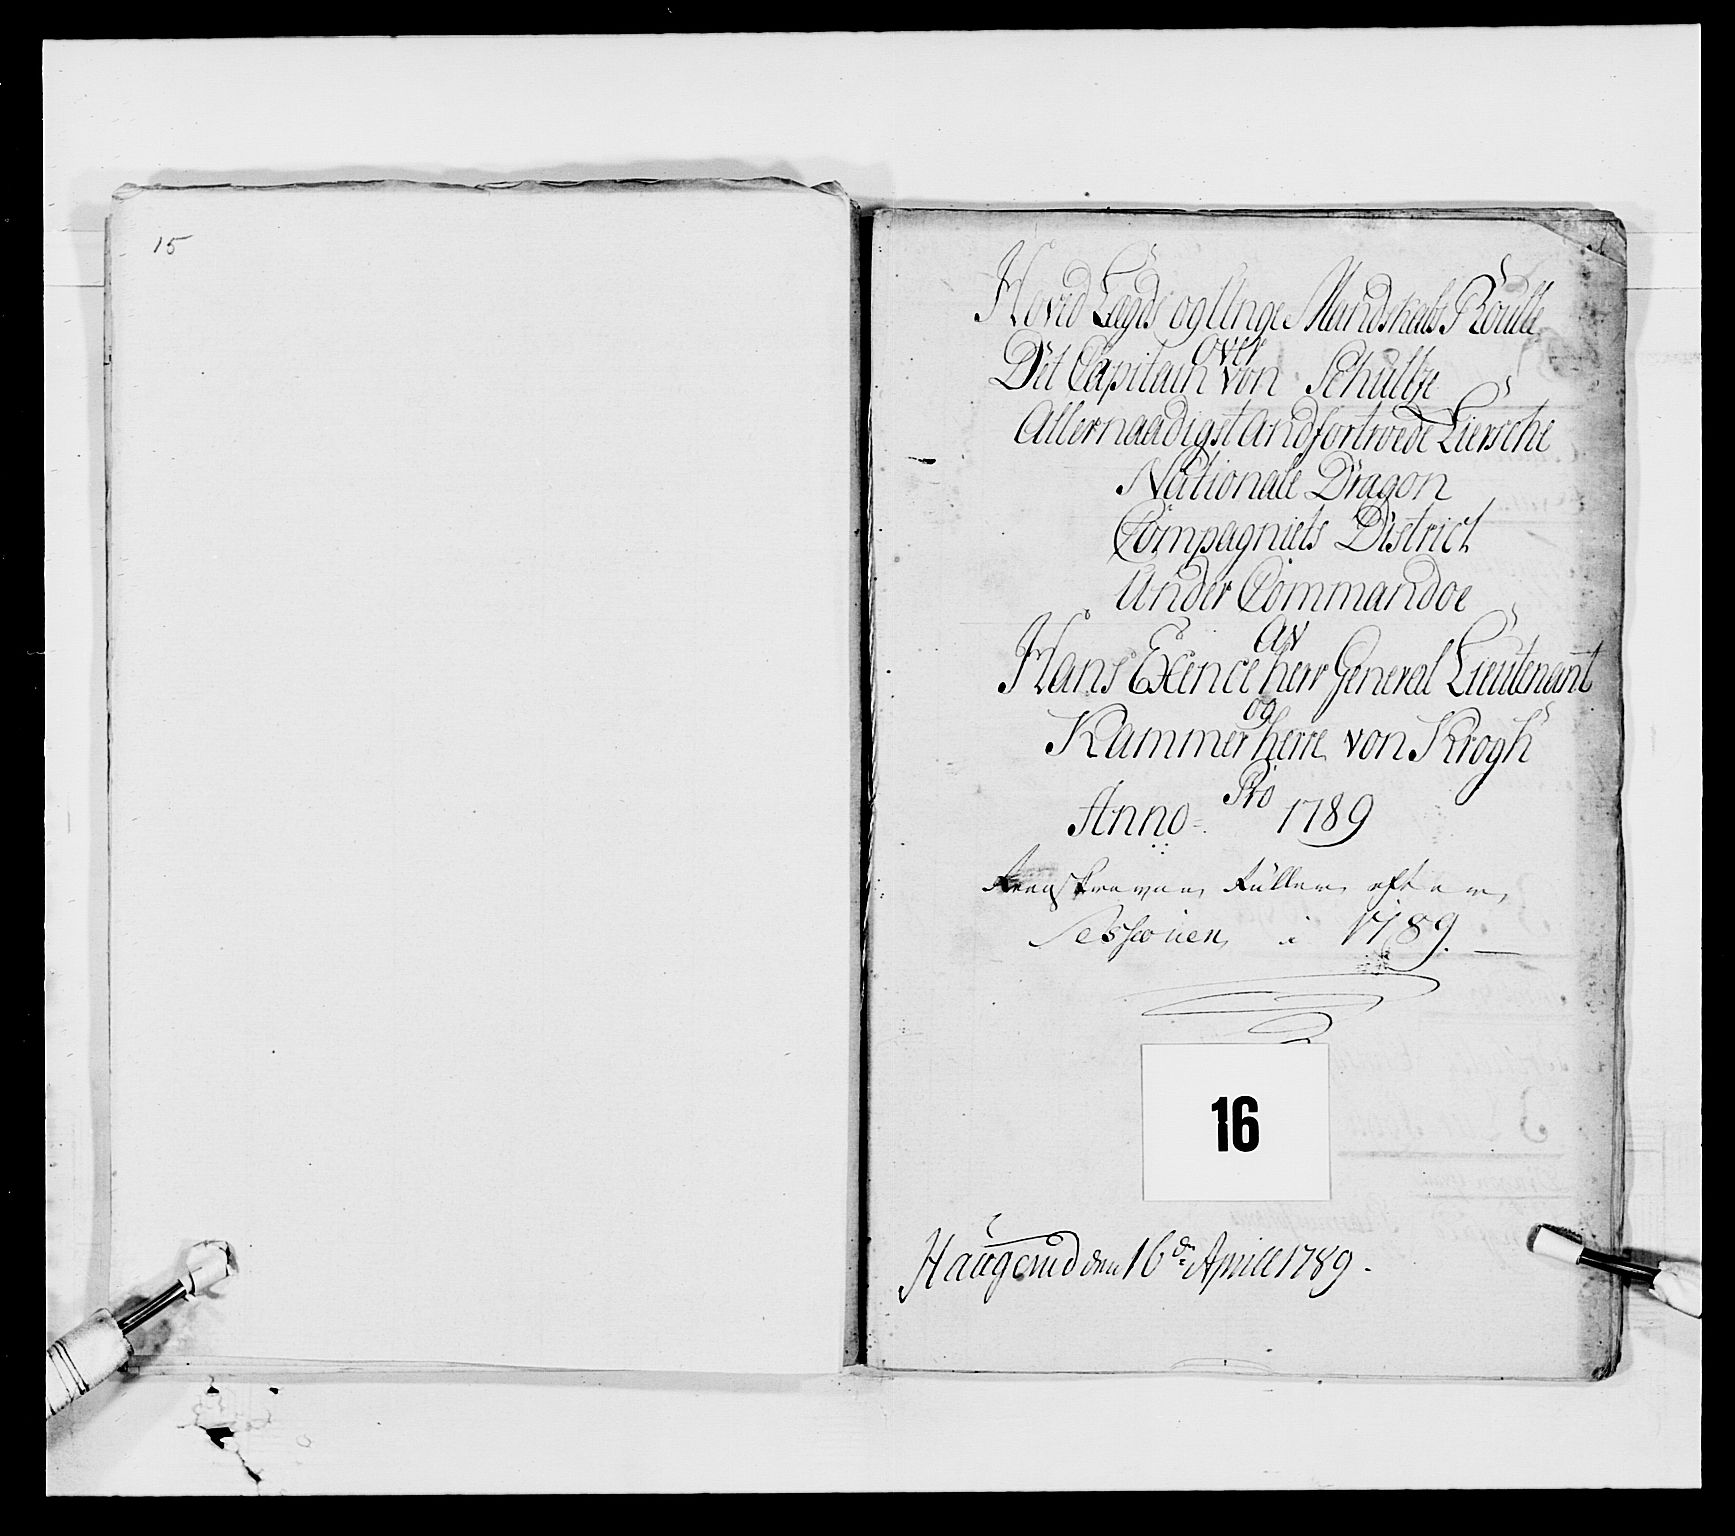 15
Hoved Lægds og Unge Mandskabs Roulle
over
Det Capitain von Schultze
Allernaadigst Andfortroede Liersche
Nationale Dragon
Compagniets District
Under Commandoe
av
Hans Exence herr General Lieutenant
og
Kammerherre von Krogh
Pro
Anno 1789
Reenskreven Rullen efter
Sessionen i 1789.
16
Haugerud den 16de Aprill 1789.